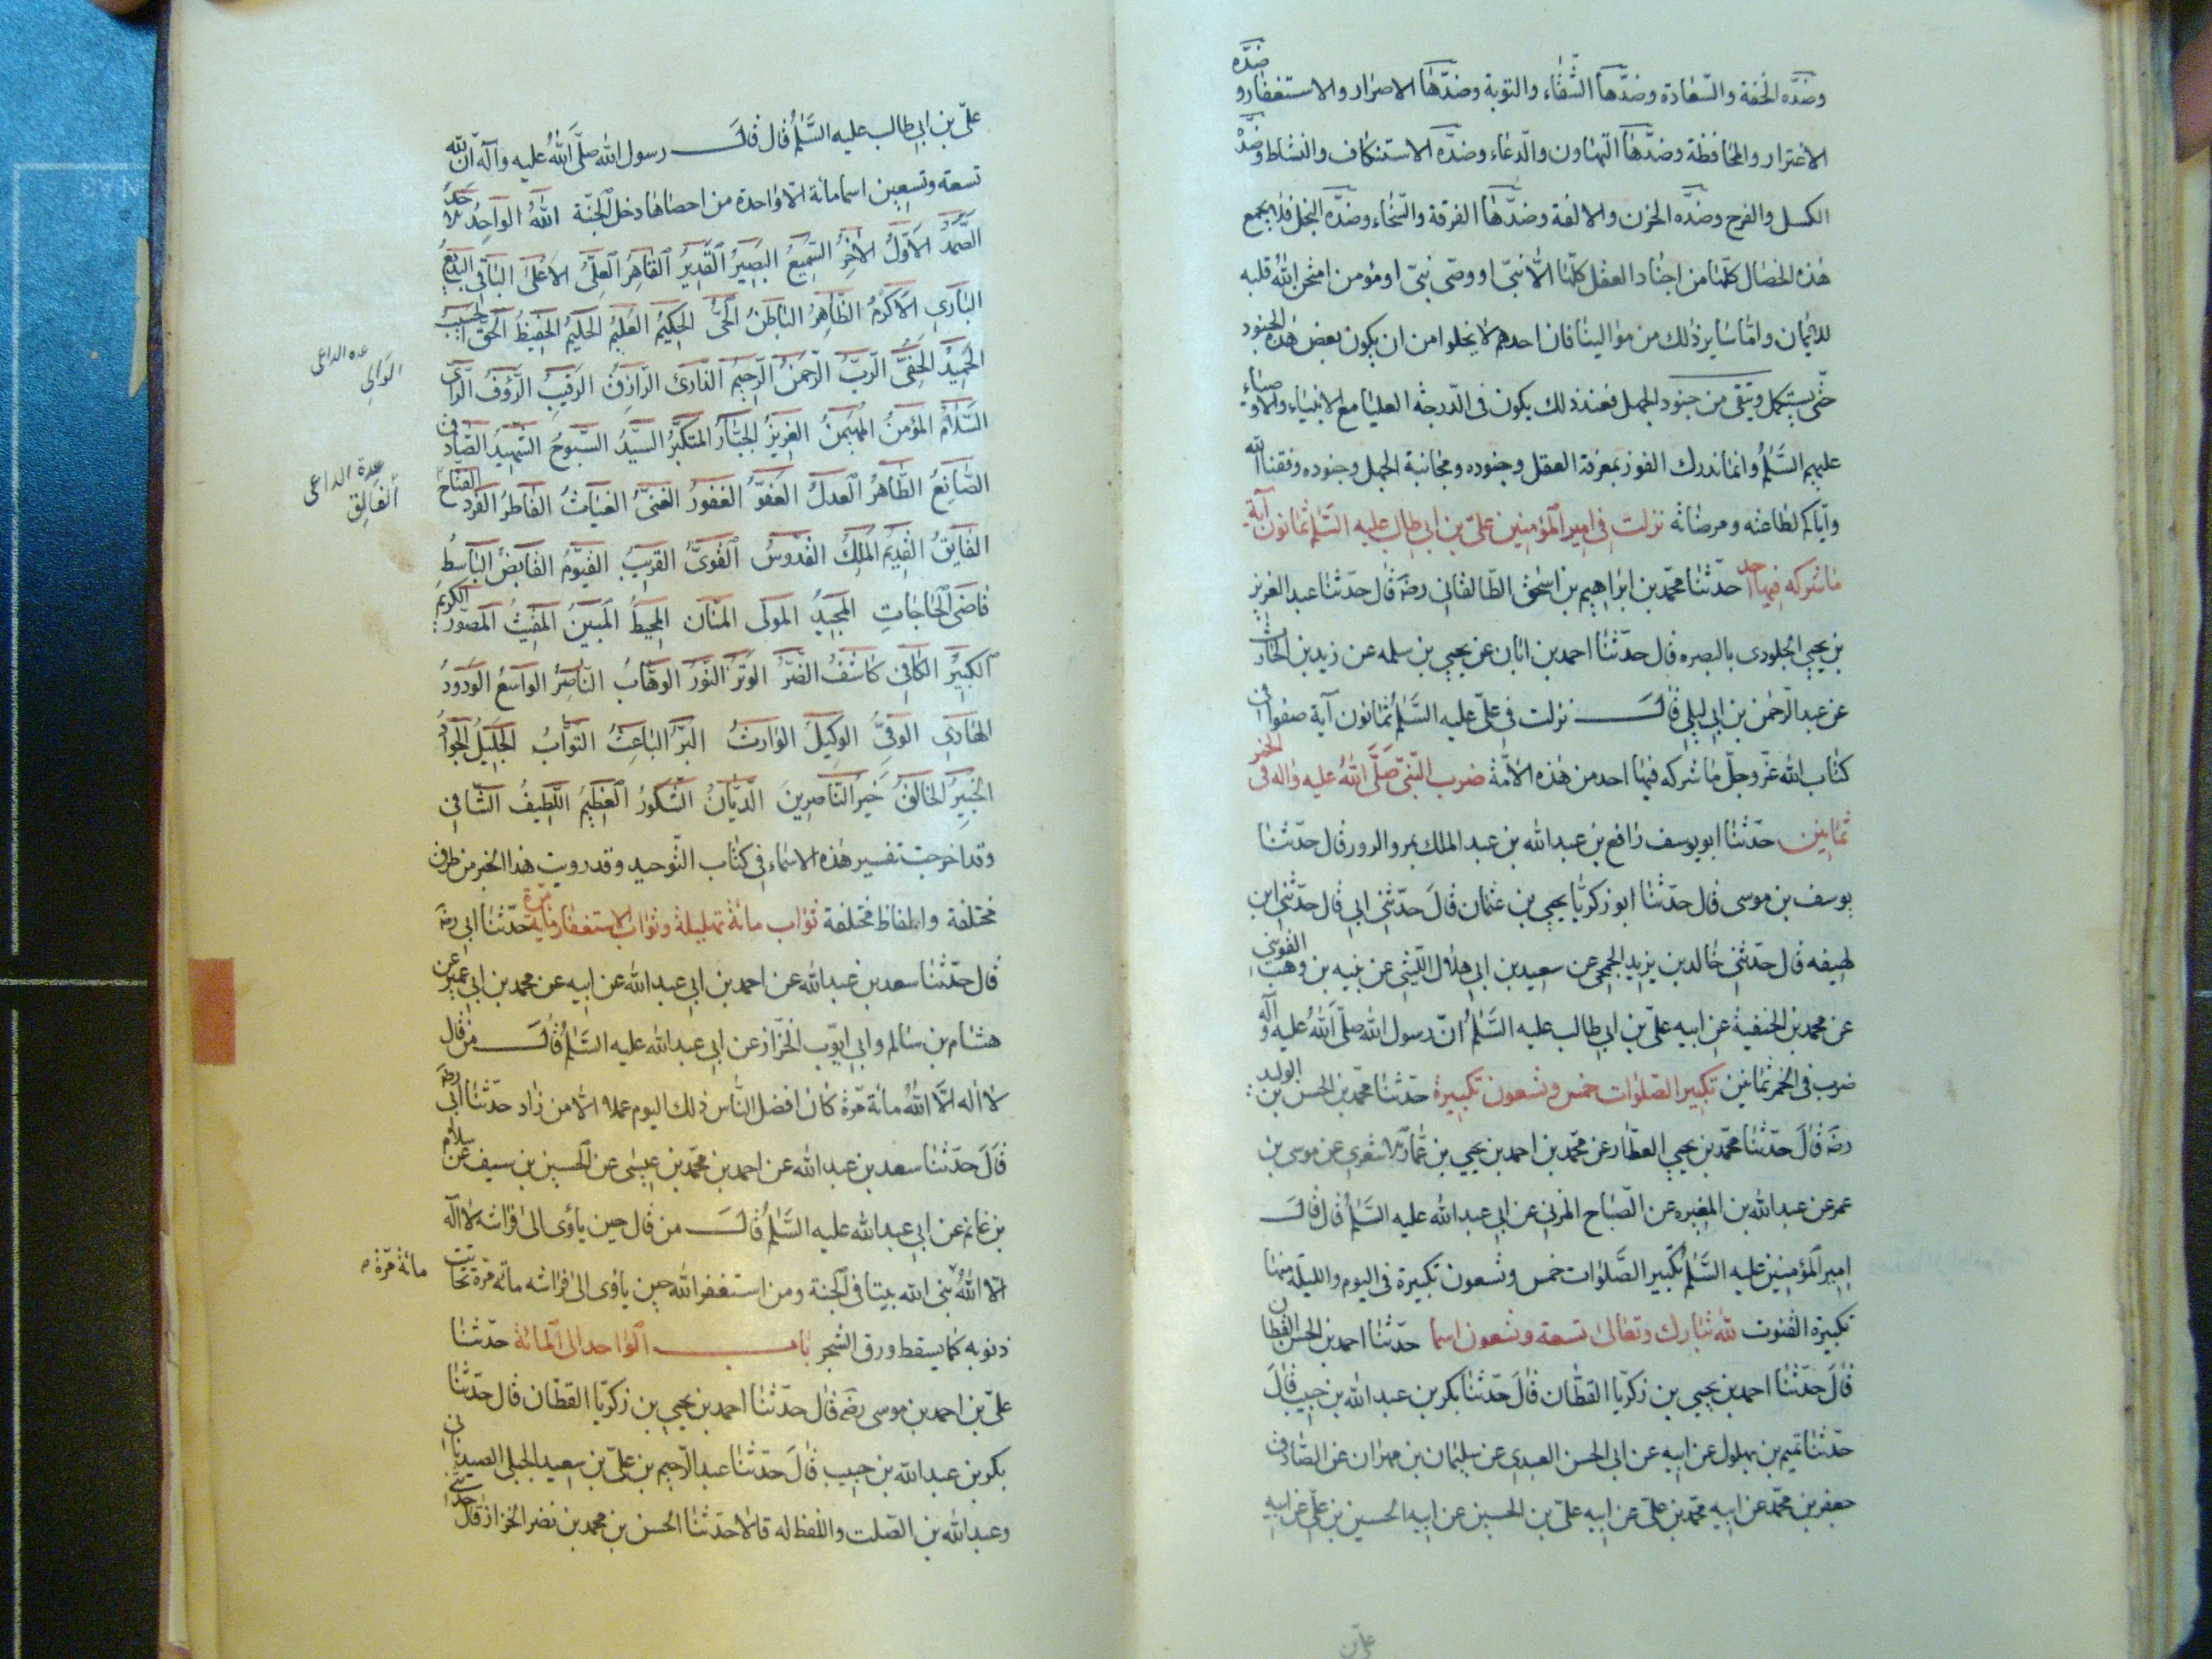 وضدّه الخفة والسّعادة وضدّها الشّقاء والتوبة وضدّها الاصرار والاستغفار وضدّه
الاغترار والمحافظة وضدّها التهاون والدّعاء وضدّه الاستنكاف والنشاط وضدّه
الكسل والفرح وضدّه الحزن والالفة وضدّها الفرقة والسّخاء وضدّه البخل فلا يجمع
هذه الخصال كلّها من اجناد العقل كلّها الّا نبيّ او وصّى نبيّ او مؤمن امتحن الله قلبه
للايمان وامّا ساير ذلك من موالينا فان احدهم لا يخلوا من ان يكون بعض هذه الجنود
حتّى يستكمل ويتقى من جنود الجهل فعند ذلك يكون فى الدّرجة العليا مع الانبياء والاوصياء
عليهم السّلم وانما ندرك الفوز بمعرفة العقل وجنوده ومجانبة الجهل وجنوده وفقنا الله
وايّاكم لطاعته ومرضاته نزلت فى امير المؤمنين علىّ بن ابى طالب عليه السّلم ثمانون آية
ما شركه فيها احد حدّثنا محمّد بن ابراهيم بن اسحق الطالقانى رضه قال حدّثنا عبد العزيز
بن يحيى الجلودى بالبصره قال حدّثنا احمد بن ابان عن يحيى بن سلمه عن زيد بن الحارث
عن عبد الرّحمن بن ابى ليلى قال نزلت فى علىّ عليه السّلم ثمانون آية صفوا فى
كتاب الله عزّ وجلّ ما شركه فيها احد من هذه الامّة ضرب النبيّ صلّى الله عليه واله فى الخمر
ثمانين حدّثنا ابو يوسف رافع بن عبد الله بن عبد الملك بمرو الرور قال حدّثنا
يوسف بن موسى قال حدّثنا ابو زكريّا يحيى بن عثمان قال حدّثنى ابى قال حدّثنى ابن
لهيفه قال حدّثنى خالد بن يزيد الجمحى عن سعيد بن ابى هلال اللّيثى عن نبيه بن وهب
عن محمد بن الحنفية عن ابيه علىّ بن ابى طالب عليه السّلم انّ رسول الله صلّى الله عليه وآله
ضرب فى الخمر ثمانين تكبير الصّلوات خمس وتسعون تكبيرة حدّثنا محمّد بن الحسن بن الوليد
رضه قال حدّثنا محمّد بن يحيى العطّار عن محمّد بن احمد بن يحيى بن عمّار الاشعرى عن موسى بن
عمر عن عبد الله بن المغيره عن الصّباح المزنى عن ابى عبد الله عليه السّلم قال قال
امير المؤمنين عليه السّلم تكبير الصّلوات خمس وتسعون تكبيرة فى اليوم والليلة منها
تكبيرة القنوت لله تبارك وتعالى تسعة وتسعون اسما حدّثنا احمد بن الحسن القطّان
قال حدّثنا احمد بن يحيى بن زكريّا القطّان قال حدّثنا بكر بن عبد الله بن حبيب قال
حدّثنا تميم بن بهلول عن ابيه عن ابى الحسن العبدى عن سليمان بن مهران عن الصّادق
جعفر بن محمّد عن ابيه محمّد بن علىّ عن ابيه علىّ بن الحسين عن ابيه الحسين بن علىّ عن ابيه
علىّ بن
علىّ بن ابى طالب عليه السّلم قال قال رسول الله صلّى الله عليه وآله انّ لله
تسعة وتسعين اسما مائة الّا واحدة من احصاها دخل الجنّة الله الواحد الاحد
الصّمد الاوّل الاخر السّميع البصير القدير القاهر العلىّ الاعلى الباقى البديع
البارى الاكرم الظّاهر الباطن الحىّ الحكيم العليم الحليم الحفيظ الحقّ الحسيب
الحميد الحفىّ الرّبّ الرّحمن الرّحيم الذارئ الرّازق الرّقيب الرّؤف الرّائى
السّلام المؤمن المهيمن العزيز الجبّار المتكبّر السّيّد السّبوح الشّهيد الصّادق
الصّانع الطّاهر العدل العفوّ الغفور الغنىّ الغياث الفاطر الفرد الفتّاح
الفالق القديم الملك القدّوس القوىّ القريب القيّوم القابض الباسط
قاضى الحاجات المجيد المولى المنّان المحيط المبين المقيث المصوّر الكريم
الكبير الكافى كاشف الضّرّ الوتر النّور الوهّاب النّاصر الواسع الودود
الهادى الوفىّ الوكيل الوارث البرّ الباعث التوّاب الجليل الجواد
الخبير الخالق خير النّاصرين الدّيّان الشّكور العظيم اللّطيف الشّافى
وقد اخرجت تفسير هذه الاسماء فى كتاب التّوحيد وقد رويت هذا الخبر من طرق
مختلفة والفاظ مختلفة ثواب مائة تهليلة وثواب الاستغفار مائة مرّة حدّثنا ابى رضه
قال حدّثنا سعد بن عبد الله عن احمد بن ابى عبد الله عن ابيه عن محمد بن ابى عمير عن
هشام بن سالم وابى ايّوب الخزّاز عن ابى عبد الله عليه السّلم قال من قال
لا اله الّا الله مائة مرّة كان افضل النّاس ذلك اليوم عملا الّا من زاد حدّثنا ابى رضه
قال حدّثنا سعد بن عبد الله عن احمد بن محمّد بن عيسى عن الحسين بن سيف عن سلام
بن غانم عن ابى عبد الله عليه السّلم قال من قال حين ياوى الى فراشه لا اله
الّا الله بنى الله بيتا فى الجنة ومن استغفر الله حين ياوى الى فراشه مائة مرّة تحاتت
ذنوبه كما يسقط ورق الشجر باب الواحد الى المائة حدّثنا
علىّ بن احمد بن موسى رضه قال حدّثنا احمد بن يحيى بن زكريّا القطّان قال حدّثنا
بكر بن عبد الله بن حبيب قال حدّثنا عبد الرّحيم بن علىّ بن سعيد الجبلى الصيدنانى
وعبد الله بن الصّلت واللفظ له قالا حدّثنا الحسن بن محمد بن نضر الخزاز قال حدّثنى
عده الداعى
الوالى
عدة الداعى
الفالق
مائة مرّة